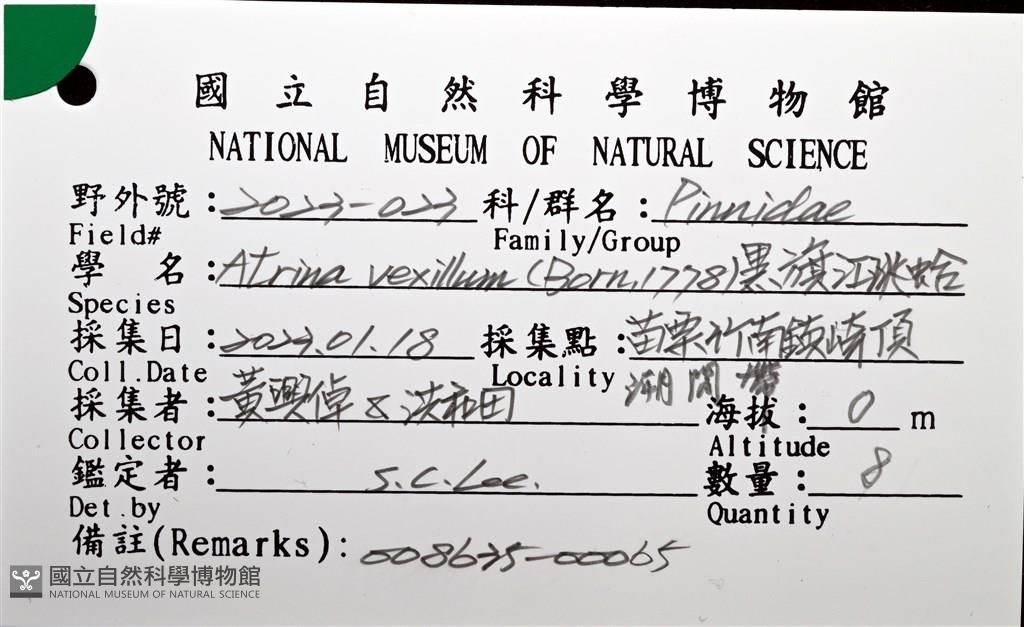 國立自然科學博物館
NATIONAL MUSEUM OF NATURAL SCIENCE
野外號：2023-023 科/群名：Pinnidae
Field# Family/Group
學 名：Atrina vexillum (Born, 1778) 黑旗江珧蛤
Species
採集日：2023.01.18 採集點：苗栗竹南鎮崎頂
Coll.Date Locality 潮間帶
採集者：黃興倬 & 洪和田 海拔：0 m
Collector Altitude
鑑定者：S.C.Lee. 數量：8
Det.by Quantity
備註(Remarks)：008635-00065
國立自然科學博物館
NATIONAL MUSEUM OF NATURAL SCIENCE